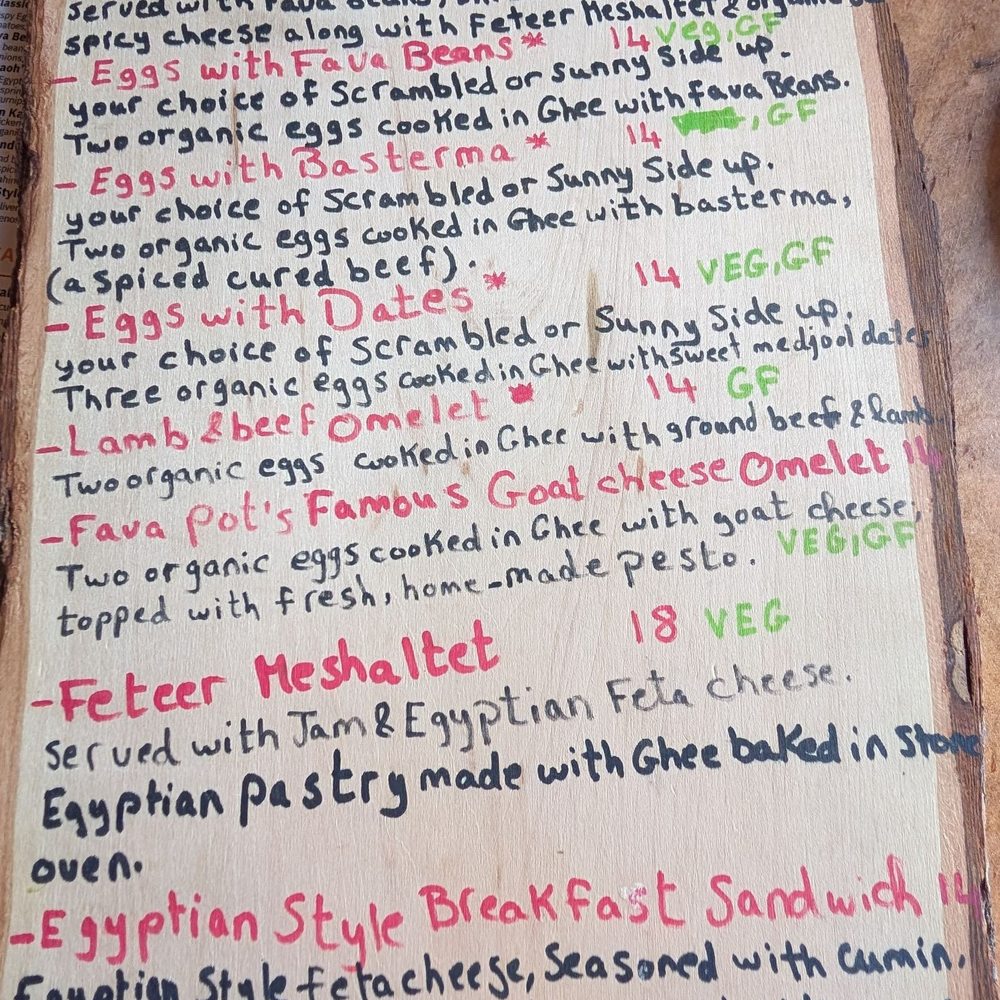 served with Fava
spicy cheese along with Feteer Meshaltet &
- Eggs with Fava Beans* 14 Veg,GF
your choice of Scrambled or Sunny Side up.
Two organic eggs cooked in Ghee with fava Beans.
- Eggs with Basterma * 14 , GF
your choice of Scrambled or Sunny Side up.
Two organic eggs cooked in Ghee with basterma,
(a spiced cured beef).
- Eggs with Dates * 14 VEG,GF
your choice of Scrambled or Sunny Side up.
Three organic eggs cooked in Ghee with sweet medjool dates
- Lamb & beef Omelet * 14 GF
Two organic eggs cooked in Ghee with ground beef & lamb.
- Fava Pot's Famous Goat cheese Omelet 14
Two organic eggs cooked in Ghee with goat cheese,
topped with fresh, home-made pesto. VEG,GF
- Feteer Meshaltet 18 VEG
served with Jam & Egyptian Feta cheese.
Egyptian pastry made with Ghee baked in Stone
oven.
- Egyptian Style Breakfast Sandwich 14
Egyptian Style feta cheese, Seasoned with cumin.